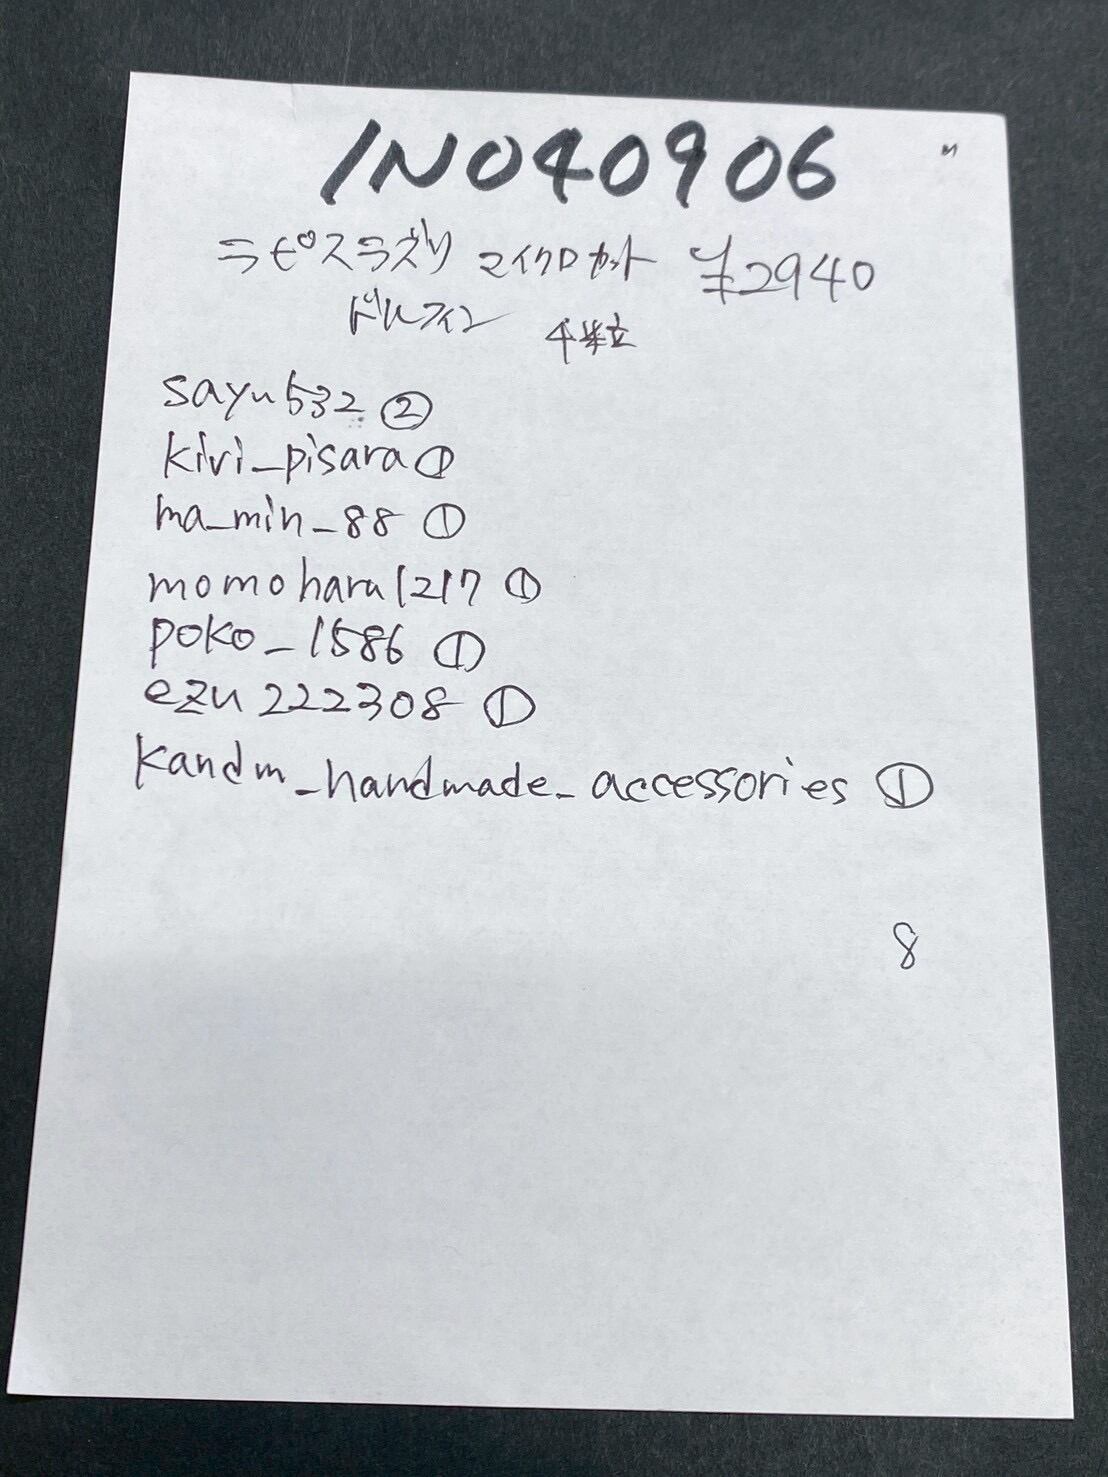 IN040906
M
ラピスラズリ マイクロカット ¥2940
ドルフィン 4粒
sayu532 ②
kivi_pisara ①
ma_min_88 ①
momoharu1217 ①
poko_1586 ①
ezu222308 ①
kandm_handmade_accessories ①
8